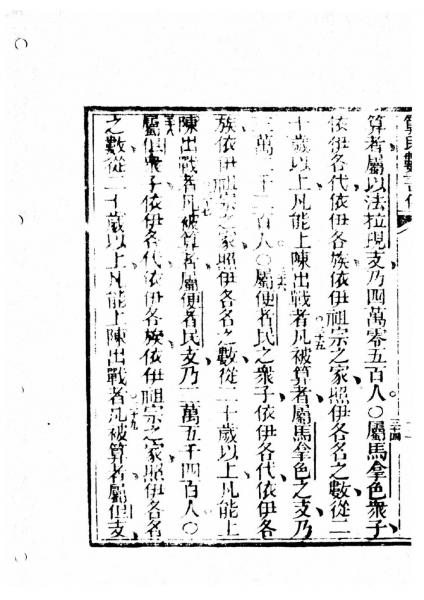 算者屬以法拉現支乃四萬零五百人〇屬馬拿色衆子
三十四
依伊各代依伊各族依伊祖宗之家照伊各名之數從二
十歲以上凡能上陳出戰者凡被算者屬馬拿色之支乃
三十五
三萬二千二百人〇屬便者民之衆子依伊各代依伊各
三十六
族依伊祖宗之家照伊各名之數從二十歲以上凡能上
陳出戰者凡被算者屬便者民支乃三萬五千四百人〇
三十七
屬但衆子依伊各代依伊各族依伊祖宗之家照伊各名
三十八
之數從二十歲以上凡能上陳出戰者凡被算者屬但支
三十九